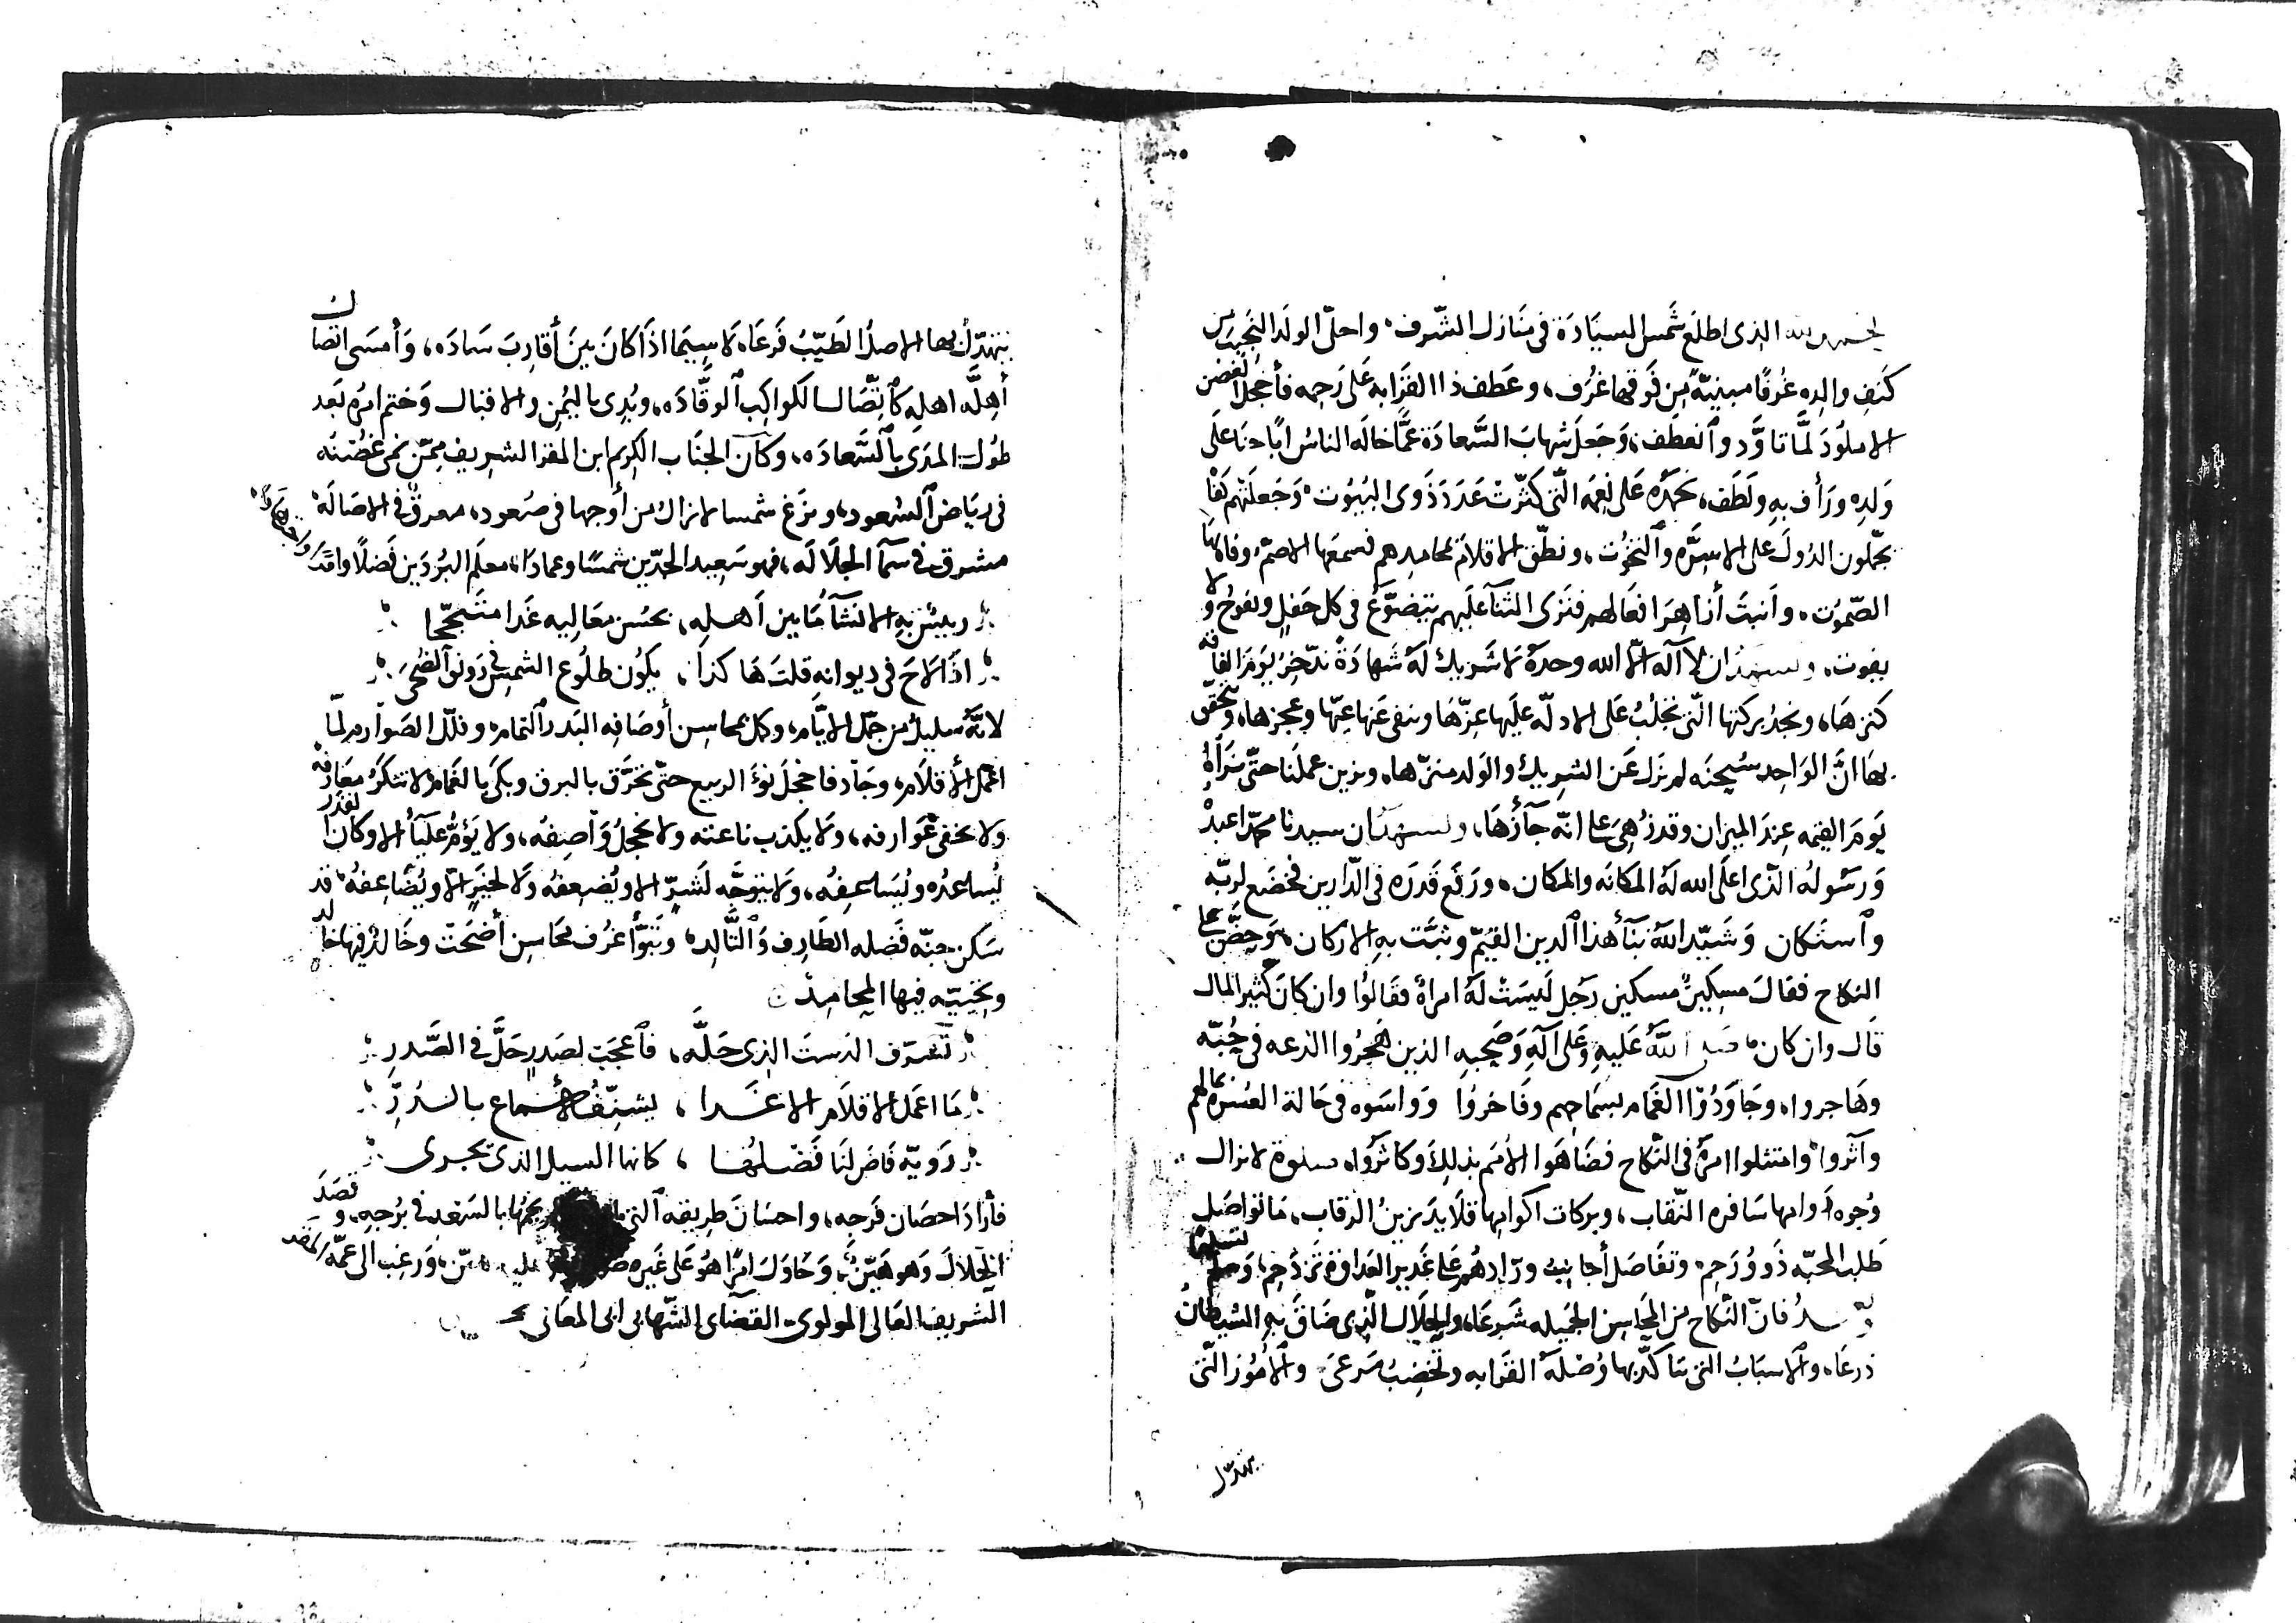 الحمد لله الذى اطلع شمس السيادة فى منازل الشرف، واحلّ الولد النجيب من
كنف والده غرفًا مبنيّة من فوقها غرف، وعطف ذا القرابه على رحمه فأخجل الغصن
الاملود لمّا تاوّد وانعطف، وجعل شهاب السعادة عمّا خاله الناس ابًا حنا على
ولده ورأف به ولطف، نحمده على نعمه التى كثّرت عدد ذوى البيوت، وجعلتهم
يجملون الدول على الاسرّه والتخوت، ونطّق الاقلام بمحامدهم فسمعها الاصمّ وفاه بها
الصّموت، وأنبت أزاهر افعالهم فترى الثنآ عليهم يتضوّع فى كل حفل ويفوح ولا
يفوت، ونشهد ان لا آله الّا الله وحده لا شريك له شهادة ندّخر ليوم الفاقه
كنزها، ونجد بركتها التى نجلب على الادلّه عليها عزّها وننفى عنها عيّها وعجزها، ونحقّق
بها انّ الواحد سبحنه لم يزل عن الشريك والولد منزّها، ونزين عملنا حتى نراه
يوم القيمه عند الميزان وقد زُهى على انّه جآز زها، ونشهد ان سيدنا محمّدا عبده
ورسوله الذى اعلى الله له المكانه والمكان، ورفع قدره فى الدّارين فخضع لربّه
واستكان وشيّد الله بنآ هذا الدين القيّم وثبّت به الاركان، وحضّ على
النكاح فقال مسكينٌ مسكين رجل ليست له امراة فقالوا وان كان كثير المال
قال وان كان، صلى الله عليه وعلى آله وصحبه الذين هجروا الدعه فى حُبّه
وهاجروا، وجاودوا الغمام بسماحهم وفاخروا وواسوه فى حالة العسره بمالهم
وآثروا، وامتثلوا امره فى النّكاح فضاهوا الأمم بذلك وكاثروا، صلوة لا تزال
وجوه دوامها سافره النّقاب، وبركات اكوابها قلايد تزين الرقاب، ما تواصل
لطلب المحبّه ذوو رحم، وتفاصل أجانب ورّادهم على غدير العداوة تزدحم، وسلم تسليما
وبعد فانّ النّكاح من المحاسن الجميله شرعا، والحلال الذى ضاق به الشيطان
ذرعا، والاسباب التى تتاكّد بها وُصلة القرابه وتخصِب مرعى والأمور التى
يتهدّل
يتهدّل بها الاصل الطيّب فرعا، لا سيما اذا كان بين أقارب ساده، وأمسى اتصال
أهلّه اهله كاتّصال الكواكب الوقّاده، وبُدى باليُمن والاقبال وختم امره بعد
طول المدى بالسّعاده، وكان الجناب الكريم ابن المقر الشريف ممّن نمى غصنه
فى رياض السعود، وبزغ شمسا لا تزال من أوجها فى صعود، معرقٌ فى الاصالة،
مشرق فى سمآ الجلاله، فهو سعيد الجدّين شمسًا وعمادًا، معلم البُردين فضلا
اذا لاح فى ديوانه قلت هاكذا، يكون طلوع الشمس فى رونق الضحى
لانّه سليل من جمّل الايّام، وكمل بمحاسن أوصافه البدر التمام، وفلّل الصوارم لمّا
اعمل الأقلام، وجاد فاخجل نوء الربيع حتى تحرّق بالبرق وبكى بالغمام، لا تنكر معارفه
ولا تخفى عوارفه، ولا يكذب ناعته ولا يخجل واصفه، ولا يؤمّ عليآ الا وكان القدر
يُساعده ويُساعفه، ولا يتوجّه لشرّ الا ويُضعفه ولا لخير الّا ويُضاعفه، قد
سكن جنّه فضله الطارف والتّالد، وتبوّأ غرف محاسن أضحت وخالد فيها خالد
وتحيّته فيها المحامد
تشرّف الدست الذى حلّه، فاعجب لصدر حلّ فى الصّدر
ما اعمل الاقلام الا غدا، يشنّف الأسماع بالدُرّ
رويّه فاض لنا فضلها، كانها السيل الذى يجرى
فأراد احصان فرجه، واحسان طريقه التى نجمها بالسّعد فى برجه، وقصد
الحلال وهو هيّن، وحاول امرا هو على غيره عليه ورغب الى عمّه المقر
الشريف العالى المولوى القضاى الشّهابى ابى المعانى